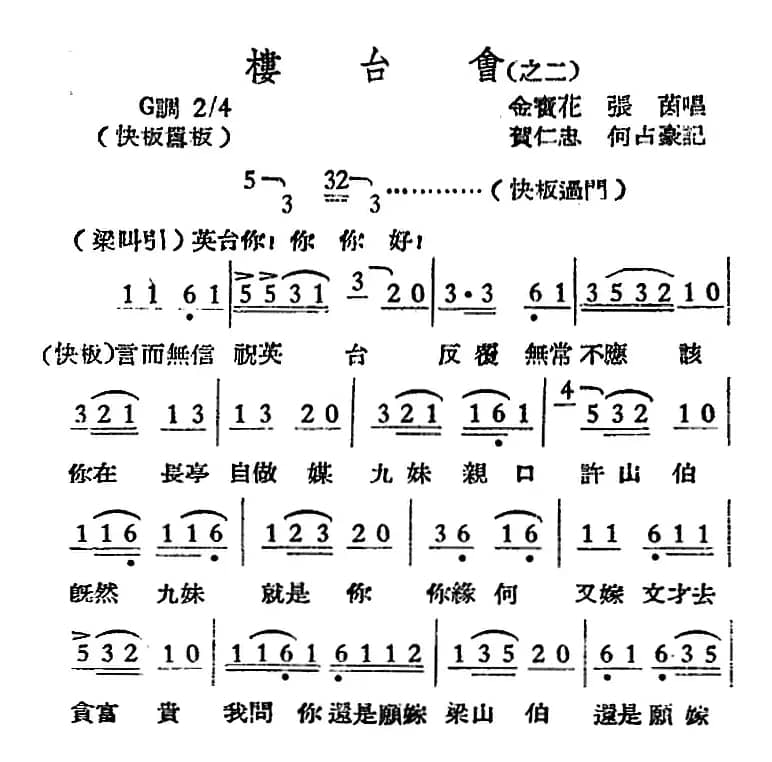 樓台會(之二)
G調 2/4 金寶花 張茵唱
(快板囂板) 賀仁忠 何占豪記
5 3 32 3 ………… (快板過門)
(梁叫引) 英台你! 你 你 好!
1 1 6 1 | 5 5 3 1 3 2 0 | 3·3 6 1 | 3 5 3 2 1 0 |
(快板) 言而無信 祝英 台 反覆 無常 不應 該
3 2 1 1 3 | 1 3 2 0 | 3 2 1 1 6 1 | 4 5 3 2 1 0 |
你在 長亭 自做 媒 九妹 親口 許山 伯
1 1 6 1 1 6 | 1 2 3 2 0 | 3 6 1 6 | 1 1 6 1 1 |
既然 九妹 就是 你 你緣 何 又嫁 文才去
5 3 2 1 0 | 1 1 6 1 6 1 1 2 | 1 3 5 2 0 | 6 1 6· 3 5 |
貪富 貴 我問 你還是願嫁 梁山 伯 還是願 嫁